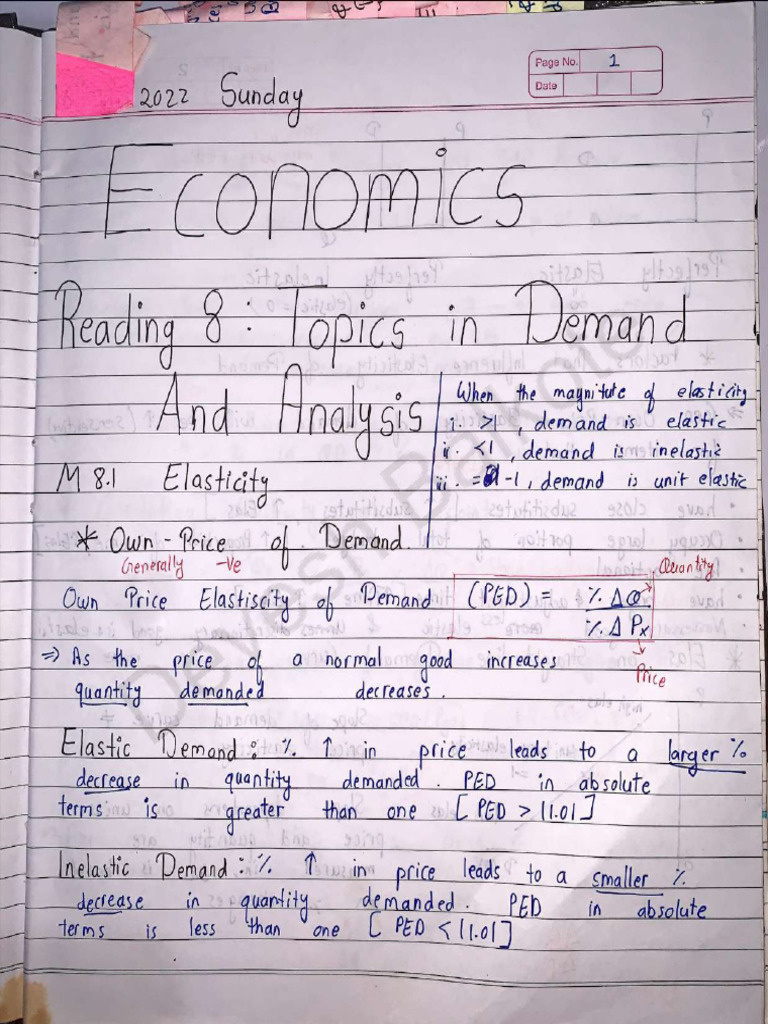 Page No. 1
Date
2022 Sunday
Economics
Reading 8 : Topics in Demand
And Analysis
When the magnitute of elasticity
i. >1, demand is elastic
ii. <1, demand is inelastic
iii. = -1, demand is unit elastic
M 8.1 Elasticity
* Own-Price of Demand.
Generally -ve
Quantity
Own Price Elastiscity of Demand (PED) = % Δ Q
% Δ Px
Price
⇒ As the price of a normal good increases
quantity demanded decreases.
Elastic Demand : % ↑ in price leads to a larger %
decrease in quantity demanded. PED in absolute
terms is greater than one [PED > |1.0|]
Inelastic Demand : % ↑ in price leads to a smaller %
decrease in quantity demanded. PED in absolute
terms is less than one [PED < |1.0|]